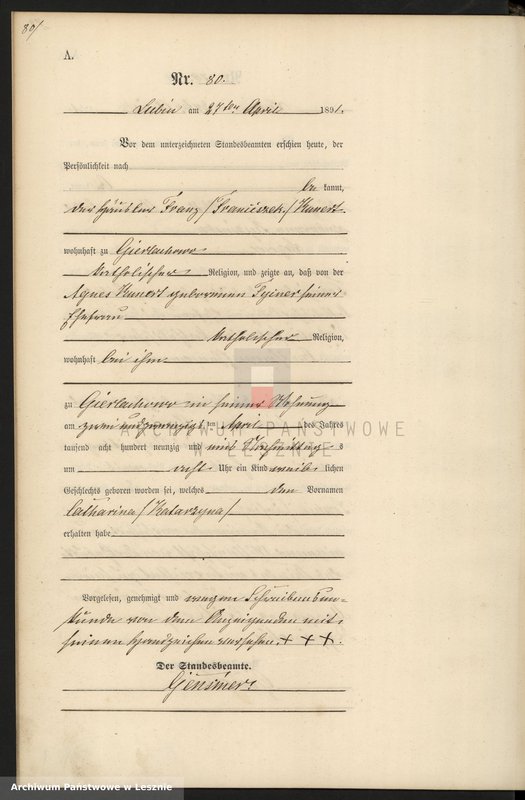 80/
A.
Nr. 80.
Lubin am 27ten April 1891.
Vor dem unterzeichneten Standesbeamten erschien heute, der
Persönlichkeit nach
be kannt,
der Häusler Franz /Franciszek/ Kunert
wohnhaft zu Gierlachowo
katholischer Religion, und zeigte an, daß von der
Agnes Kunert geborenen seiner
Ehefrau
katholischer Religion,
wohnhaft bei ihm
zu Gierlachowo in seiner Wohnung
am zwei und zwanzigsten April des Jahres
tausend acht hundert neunzig und eins Vormittag s
um acht Uhr ein Kind weib lichen
Geschlechts geboren worden sei, welches den Vornamen
Catharina /Katarzyna/
erhalten habe
Vorgelesen, genehmigt und wegen Schreibensun-
kunde von dem Anzeigenden mit
seinen Handzeichen versehen. + + +.
Der Standesbeamte.
ARCHIWUM PAŃSTWOWE
W LESZNIE
Archiwum Państwowe w Lesznie